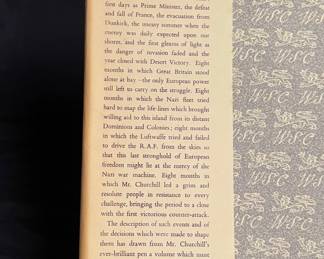 first days as Prime Minister, the defeat
and fall of France, the evacuation from
Dunkirk, the uneasy summer when the
enemy was daily expected upon our
shores, and the first gleams of light as
the danger of invasion faded and the
year closed with Desert Victory. Eight
months in which Great Britain stood
alone at bay—the only European power
still left to carry on the struggle. Eight
months in which the Nazi fleet tried
hard to snap the life-lines which brought
willing aid to this island from its distant
Dominions and Colonies; eight months
in which the Luftwaffe tried and failed
to drive the R.A.F. from the skies so
that this last stronghold of European
freedom might lie at the mercy of the
Nazi war machine. Eight months in
which Mr. Churchill led a grim and
resolute people in resistance to every
challenge, bringing the period to a close
with the first victorious counter-attack.
The description of such events and of
the decisions which were made to shape
them has drawn from Mr. Churchill's
ever-brilliant pen a volume which must